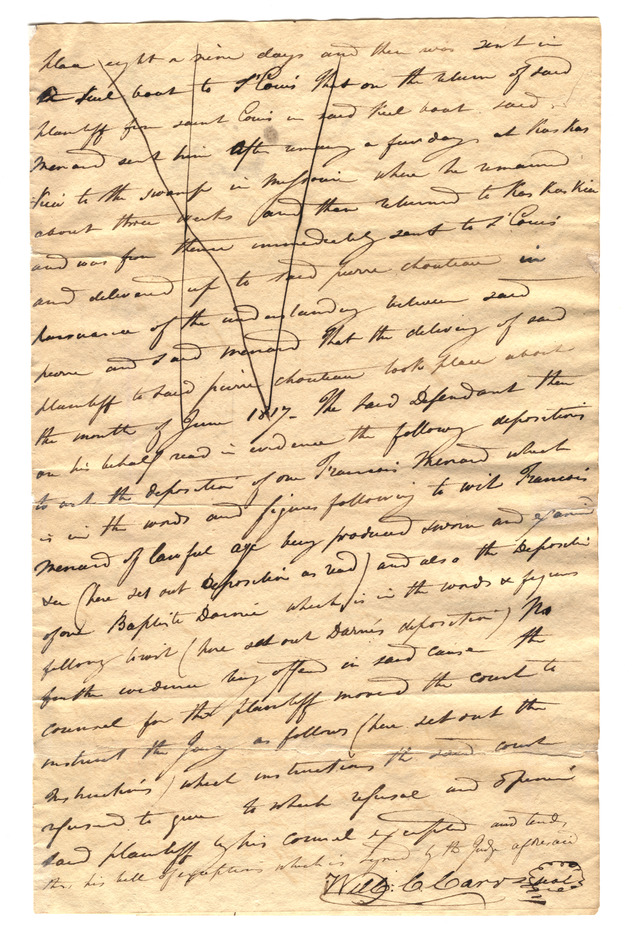 place eight a nine days and then was sent in
Keel boat to St Louis that on the return of said
plaintiff from saint Louis in said Keel boat said
Menard sent him After remaing a few days at Kas Kas
Kia to the swamp in Missouri where he remained
about three weeks and then returned to Kas Kas Kia
and was from thence immediately sent to St Louis
and delivered up to said pierre chouteau in
pursuance of the understanding between said
pierre and said Menard That the delivery of said
plaintiff to said pierre chouteau took place about
the month of June 1817- The said Defendant then
on his behalf read in evidence the following depositions
to wit the deposition of one Francois Menard which
is in the words and figures following to wit Francois
Menard of lawful age being produced sworn and examd
&c (here set out Deposition as read) and also the Depositi
of one Baptiste which is in the words & figures
following towit (here set out deposition) No
further evidence being offered in said cause the
counsel for the plaintiff moved the court to
instruct the Jury as follows (here set out the
Instructions) which instructions the said court
refused to give to which refusal and opinion
said plaintiff by his counsel excepted and tends
this his bill of exceptions which is signed by the Judge aforesaid
Will: C Carr seal